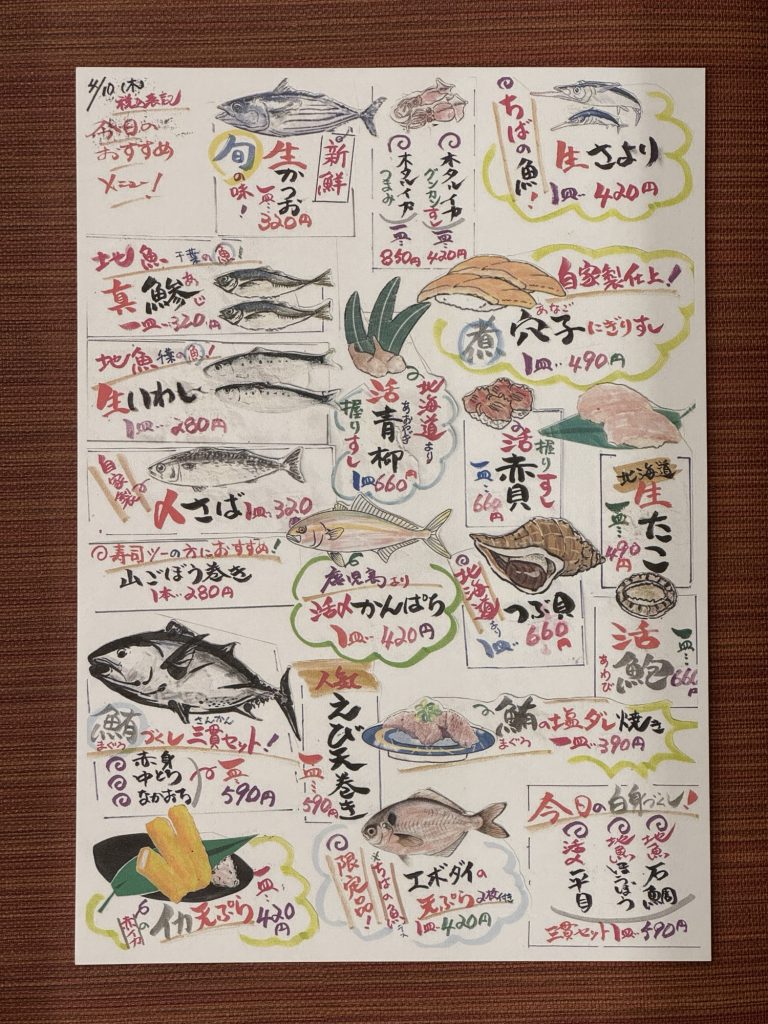 4/10(木)
税込表記
今日の
おすすめ
メニュー!
新鮮
旬の味!
生かつお
一皿…320円
ホタルイカ
グンカンすし
一皿…420円
ホタルイカ
つまみ
一皿…850円
ちばの魚!
生さより
1皿…420円
地魚 千葉の魚!
真鯵
あじ
一皿…320円
自家製仕上!
煮穴子にぎりすし
あなご
1皿…490円
地魚 千葉の魚!
生いわし
1皿…280円
北海道より
活青柳
あおやぎ
握りすし
1皿660円
活赤貝
握りすし
一皿…660円
北海道
生たこ
一皿…490円
自家製
〆さば 1皿…320
寿司ツーの方におすすめ!
山ごぼう巻き
1本…280円
鹿児島より
活〆かんぱち
1皿…420円
北海道より
つぶ貝
1皿…660円
活鮑
あわび
一皿…660
鮪づくし三貫セット!
まぐろ
さんかん
赤身
中とろ
なかおち
一皿…590円
人気
えび天巻き
一皿…590円
鮪の塩ダレ焼き
まぐろ
一皿…390円
イカ天ぷら
一皿…420円
限定品!
ちばの魚
エボダイの
天ぷら 2枚付き
1皿…420円
今日の白身づくし!
地魚石鯛
地魚ほうぼう
活〆平目
三貫セット1皿…590円